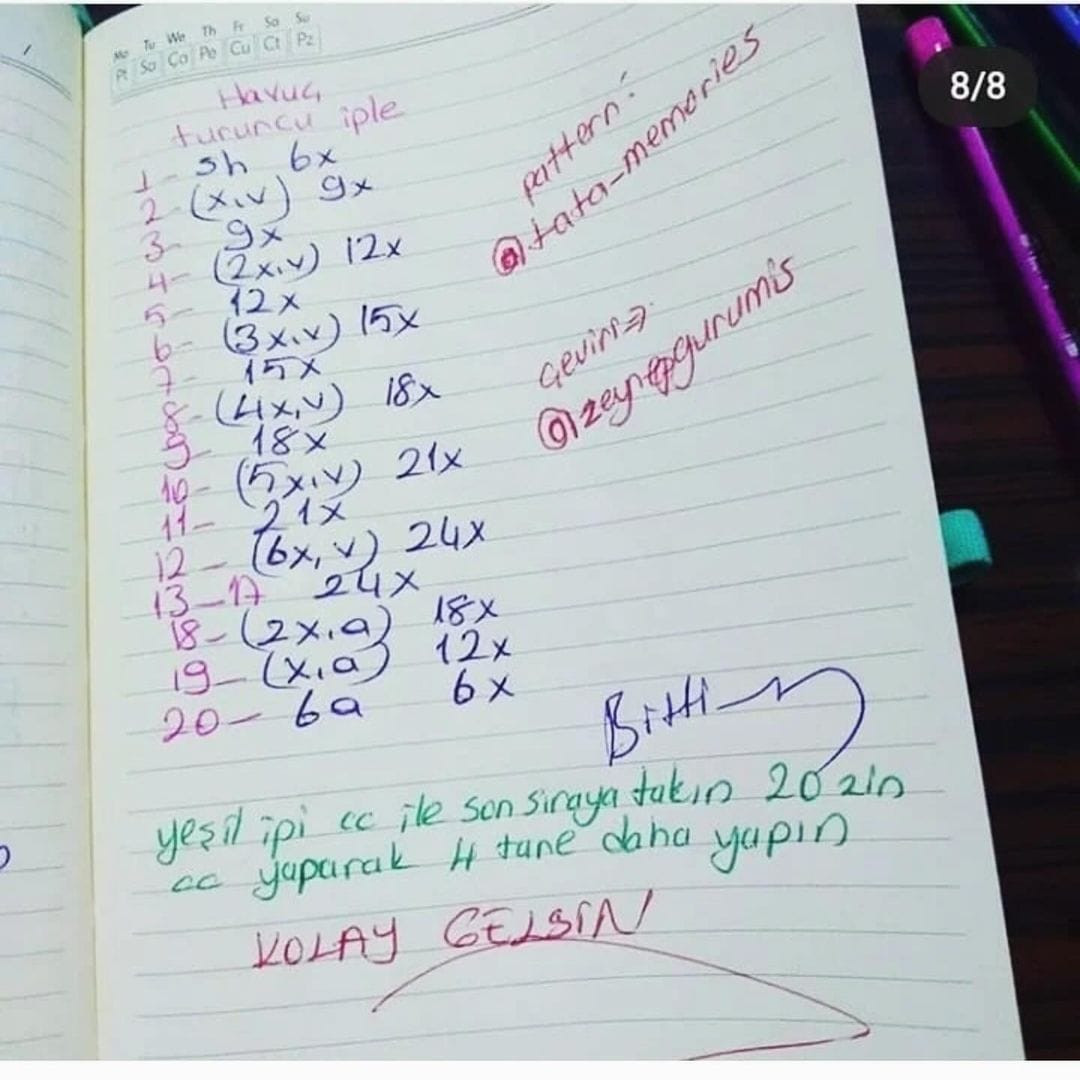 Mo Tu We Th Fr Sa Su
Pt Sa Ça Pe Cu Ct Pz
8/8
Havuç
turuncu iple
1- sh 6x
2- (x,v) 9x
3- 9x
4- (2x,v) 12x
5- 12x
6- (3x,v) 15x
7- 15x
8- (4x,v) 18x
9- 18x
10- (5x,v) 21x
11- 21x
12- (6x,v) 24x
13-17 24x
18- (2x,a) 18x
19- (x,a) 12x
20- 6a 6x
pattern:
@tata-memories
çeviri⇒
@zeynepgurumis
Bitti
yeşil ipi cc ile son sıraya takın 20 zin
cc yaparak 4 tane daha yapın
KOLAY GELSİN